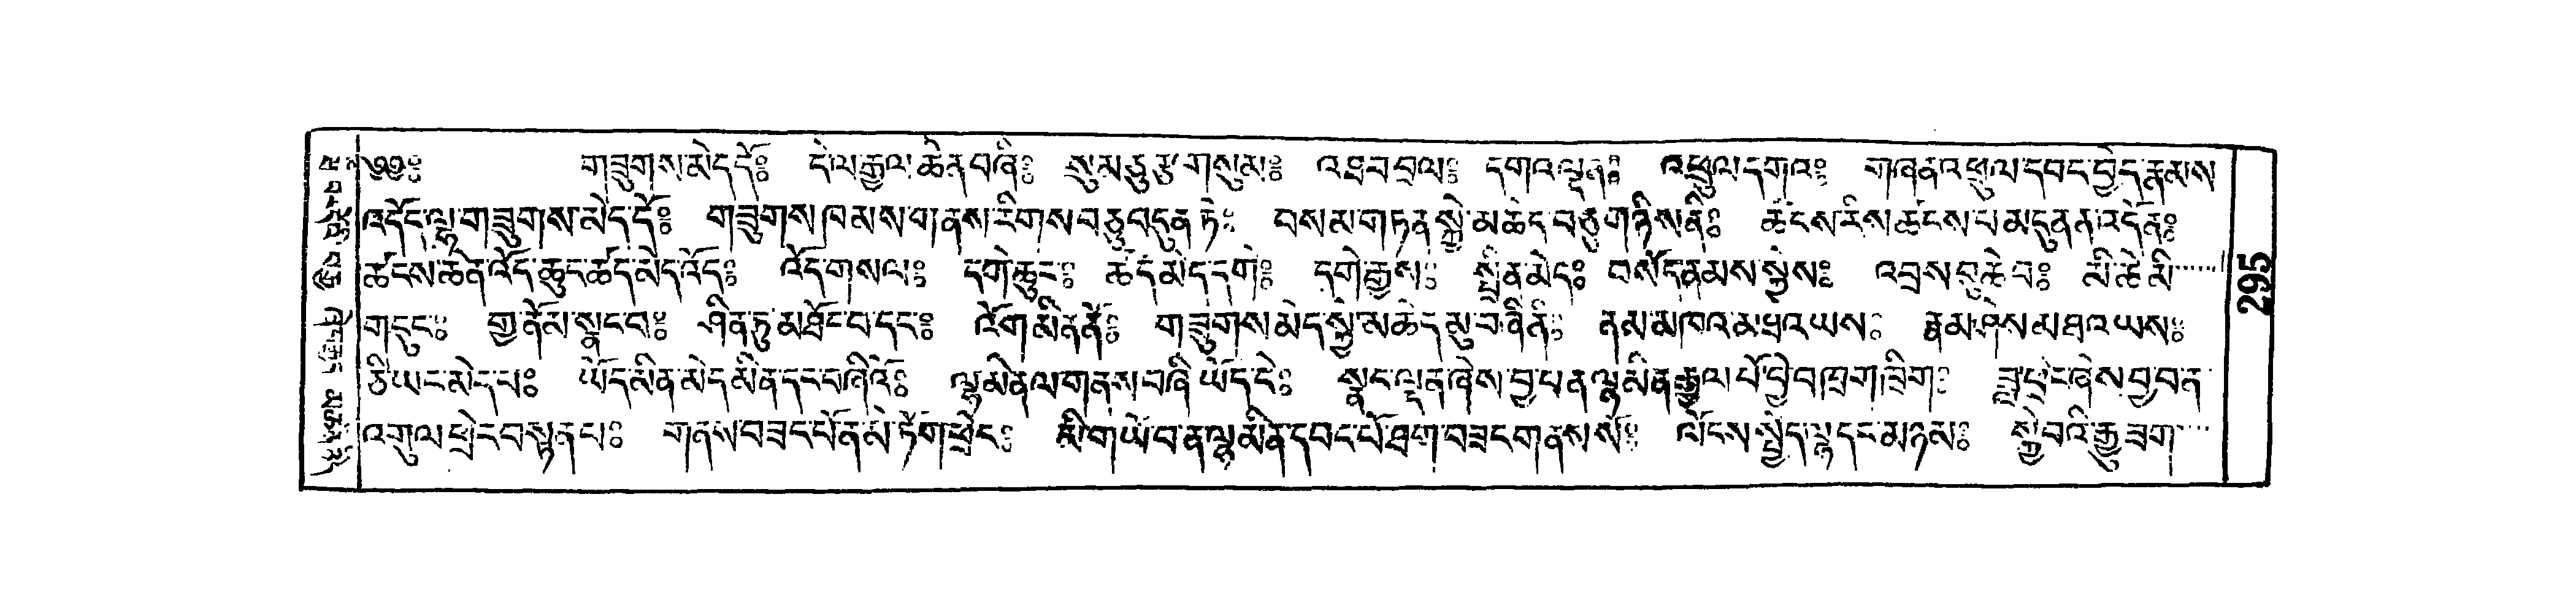 ༄༅༔ གཟུགས་མེད་དོ༔ དེ་ལ་རྒྱལ་ཆེན་བཞི༔ སུམ་ཅུ་རྩ་གསུམ༔ འཐབ་བྲལ༔ དགའ་ལྡན༔ འཕྲུལ་དགའ༔ གཞན་འཕྲུལ་དབང་བྱེད་རྣམས
འདོད་ལྷ་གཟུགས་མེད་དོ༔ གཟུགས་ཁམས་གནས་རིགས་བཅུ་བདུན་ཏེ༔ བསམ་གཏན་སྐྱེ་མཆེད་བཅུ་གཉིས་ནི༔ ཚངས་རིས་ཚངས་པ་མདུན་ན་འདོན༔
ཚངས་ཆེན་འོད་ཆུང་ཚད་མེད་འོད༔ འོད་གསལ༔ དགེ་ཆུང་༔ ཚད་མེད་དགེ༔ དགེ་རྒྱས༔ སྤྲིན་མེད༔ བསོད་ནམས་སྐྱེས༔ འབྲས་བུ་ཆེ་བ༔ མི་ཆེ་མི
གདུང་༔ གྱ་ནོམ་སྣང་བ༔ ཤིན་ཏུ་མཐོང་བ་དང་༔ འོག་མིན་ནོ༔ གཟུགས་མེད་སྐྱེ་མཆེད་མུ་བཞི་ནི༔ ནམ་མཁའ་མཐའ་ཡས༔ རྣམ་ཤེས་མཐའ་ཡས༔
ཅི་ཡང་མེད་པ༔ ཡོད་མིན་མེད་མིན་དང་བཞིའོ༔ ལྷ་མིན་ལ་གནས་བཞི་ཡོད་དེ༔ སྣང་ལྡན་ཞེས་བྱ་བ་ན་ལྷ་མིན་རྒྱལ་པོ་བྱེ་བ་ཁྲག་ཁྲིག༔ ཟླ་ཕྲེང་ཞེས་བྱ་བ་ན
འགུལ་ཕྲེང་བསྟན་པ༔ གནས་བཟང་པོ་ན་མེ་ཏོག་ཕྲེང་༔ མི་གཡོ་བ་ན་ལྷ་མིན་དབང་པོ་ཐག་བཟང་གནས་སོ༔ ལོངས་སྤྱོད་ལྷ་དང་མཉམ༔ སྐྱེ་བའི་རྒྱུ་ཟག